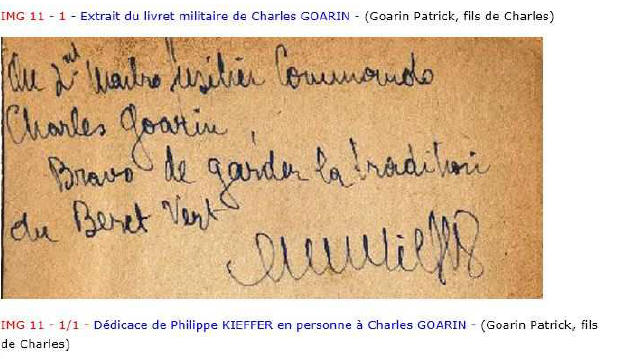 IMG 11 - 1 - Extrait du livret militaire de Charles GOARIN - (Goarin Patrick, fils de Charles)
Au 2nd Maitre fusilier Commando
Charles Goarin,
Bravo de garder la tradition
du Beret Vert
IMG 11 - 1/1 - Dédicace de Philippe KIEFFER en personne à Charles GOARIN - (Goarin Patrick, fils
de Charles)